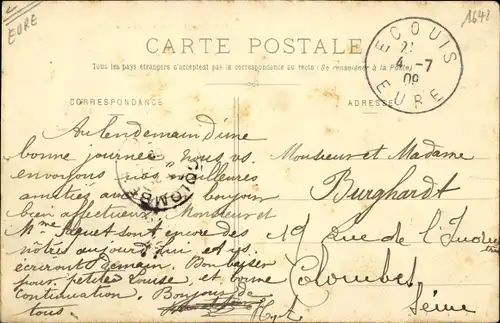 EURE
1648
ECOUIS
21
4-7
09
EURE
CARTE POSTALE
Tous les pays étrangers n'acceptent pas la correspondance au recto (Se renseigner à la Poste)
CORRESPONDANCE
ADRESSE
Au lendemain d'une
bonne journée nous vs
envoyons nos meilleures
amitiés avec bonjour
bien affectueux. Monsieur et
Mme Paquet sont encore des
nôtres aujourd'hui et vs
écriront demain. Bon baiser
pour petite Louise et bonne
continuation. Bonjour de
tous
COLOMBES
Monsieur et Madame
Burghardt
19 Rue de l'Industrie
Colombes
Seine